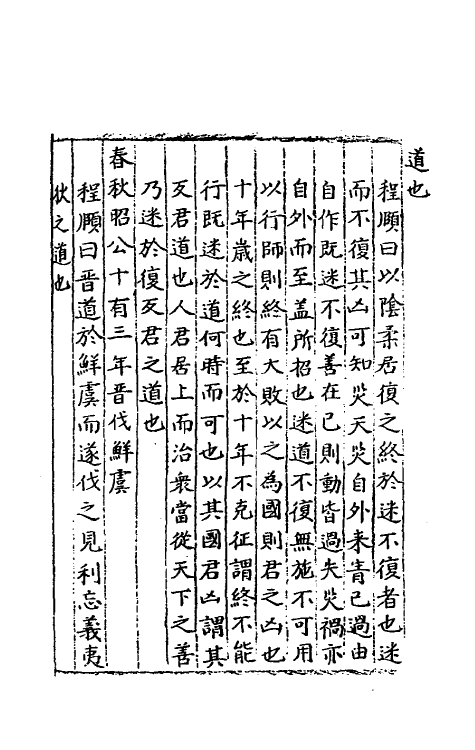 道也
程頤曰以陰柔居復之終於迷不復者也迷
而不復其凶可知災天災自外来眚己過由
自作既迷不復善在己則動皆過失災禍亦
自外而至盖所招也迷道不復無施不可用
以行師則終有大敗以之為國則君之凶也
十年嵗之終也至於十年不克征謂終不能
行既迷於道何時而可也以其國君凶謂其
反君道也人君居上而治衆當從天下之善
乃迷於復反君之道也
春秋昭公十有三年晋伐鮮虞
程頤曰晋道於鮮虞而遂伐之見利忘義夷
狄之道也